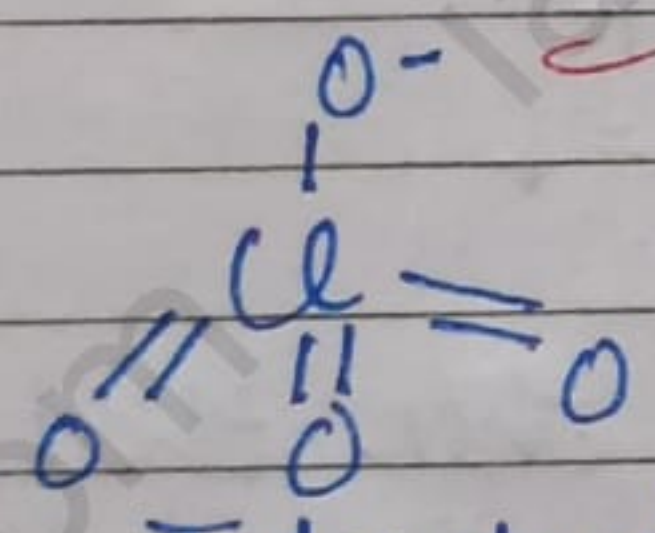 O-
Cl
O O O